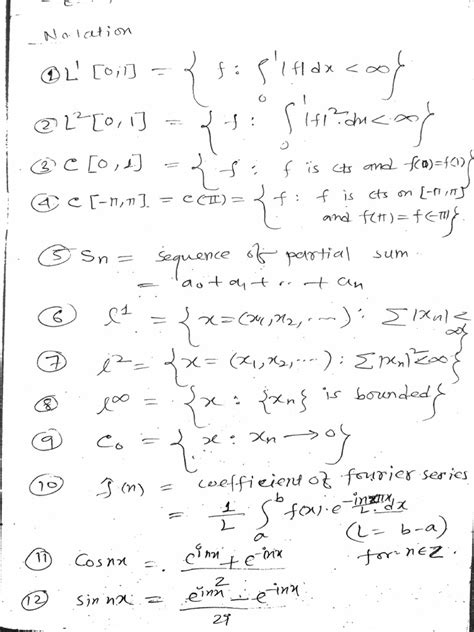 Notation
① L¹ [0,1] = { f : ∫₀¹ |f| dx < ∞ }
② L² [0,1] = { f : ∫₀¹ |f|² dx < ∞ }
③ C [0,1] = { f : f is cts and f(0)=f(1) }
④ C [-π,π] = C(Π) = { f : f is cts on [-π,π]
and f(π) = f(-π) }
⑤ Sn = sequence of partial sum
= a₀ + a₁ + ... + an
⑥ l¹ = { x = (x₁, x₂, ...) : Σ |xn| < ∞ }
⑦ l² = { x = (x₁, x₂, ...) : Σ |xn|² < ∞ }
⑧ l^∞ = { x : {xn} is bounded }
⑨ C₀ = { x : xn → 0 }
⑩ f̂(n) = coefficient of fourier series
= 1/L ∫ₐᵇ f(x) · e^ dx
(L = b-a)
for n ∈ Z.
⑪ cos nx = (e^inx + e^-inx) / 2
⑫ sin nx = (e^inx - e^-inx) / 2i